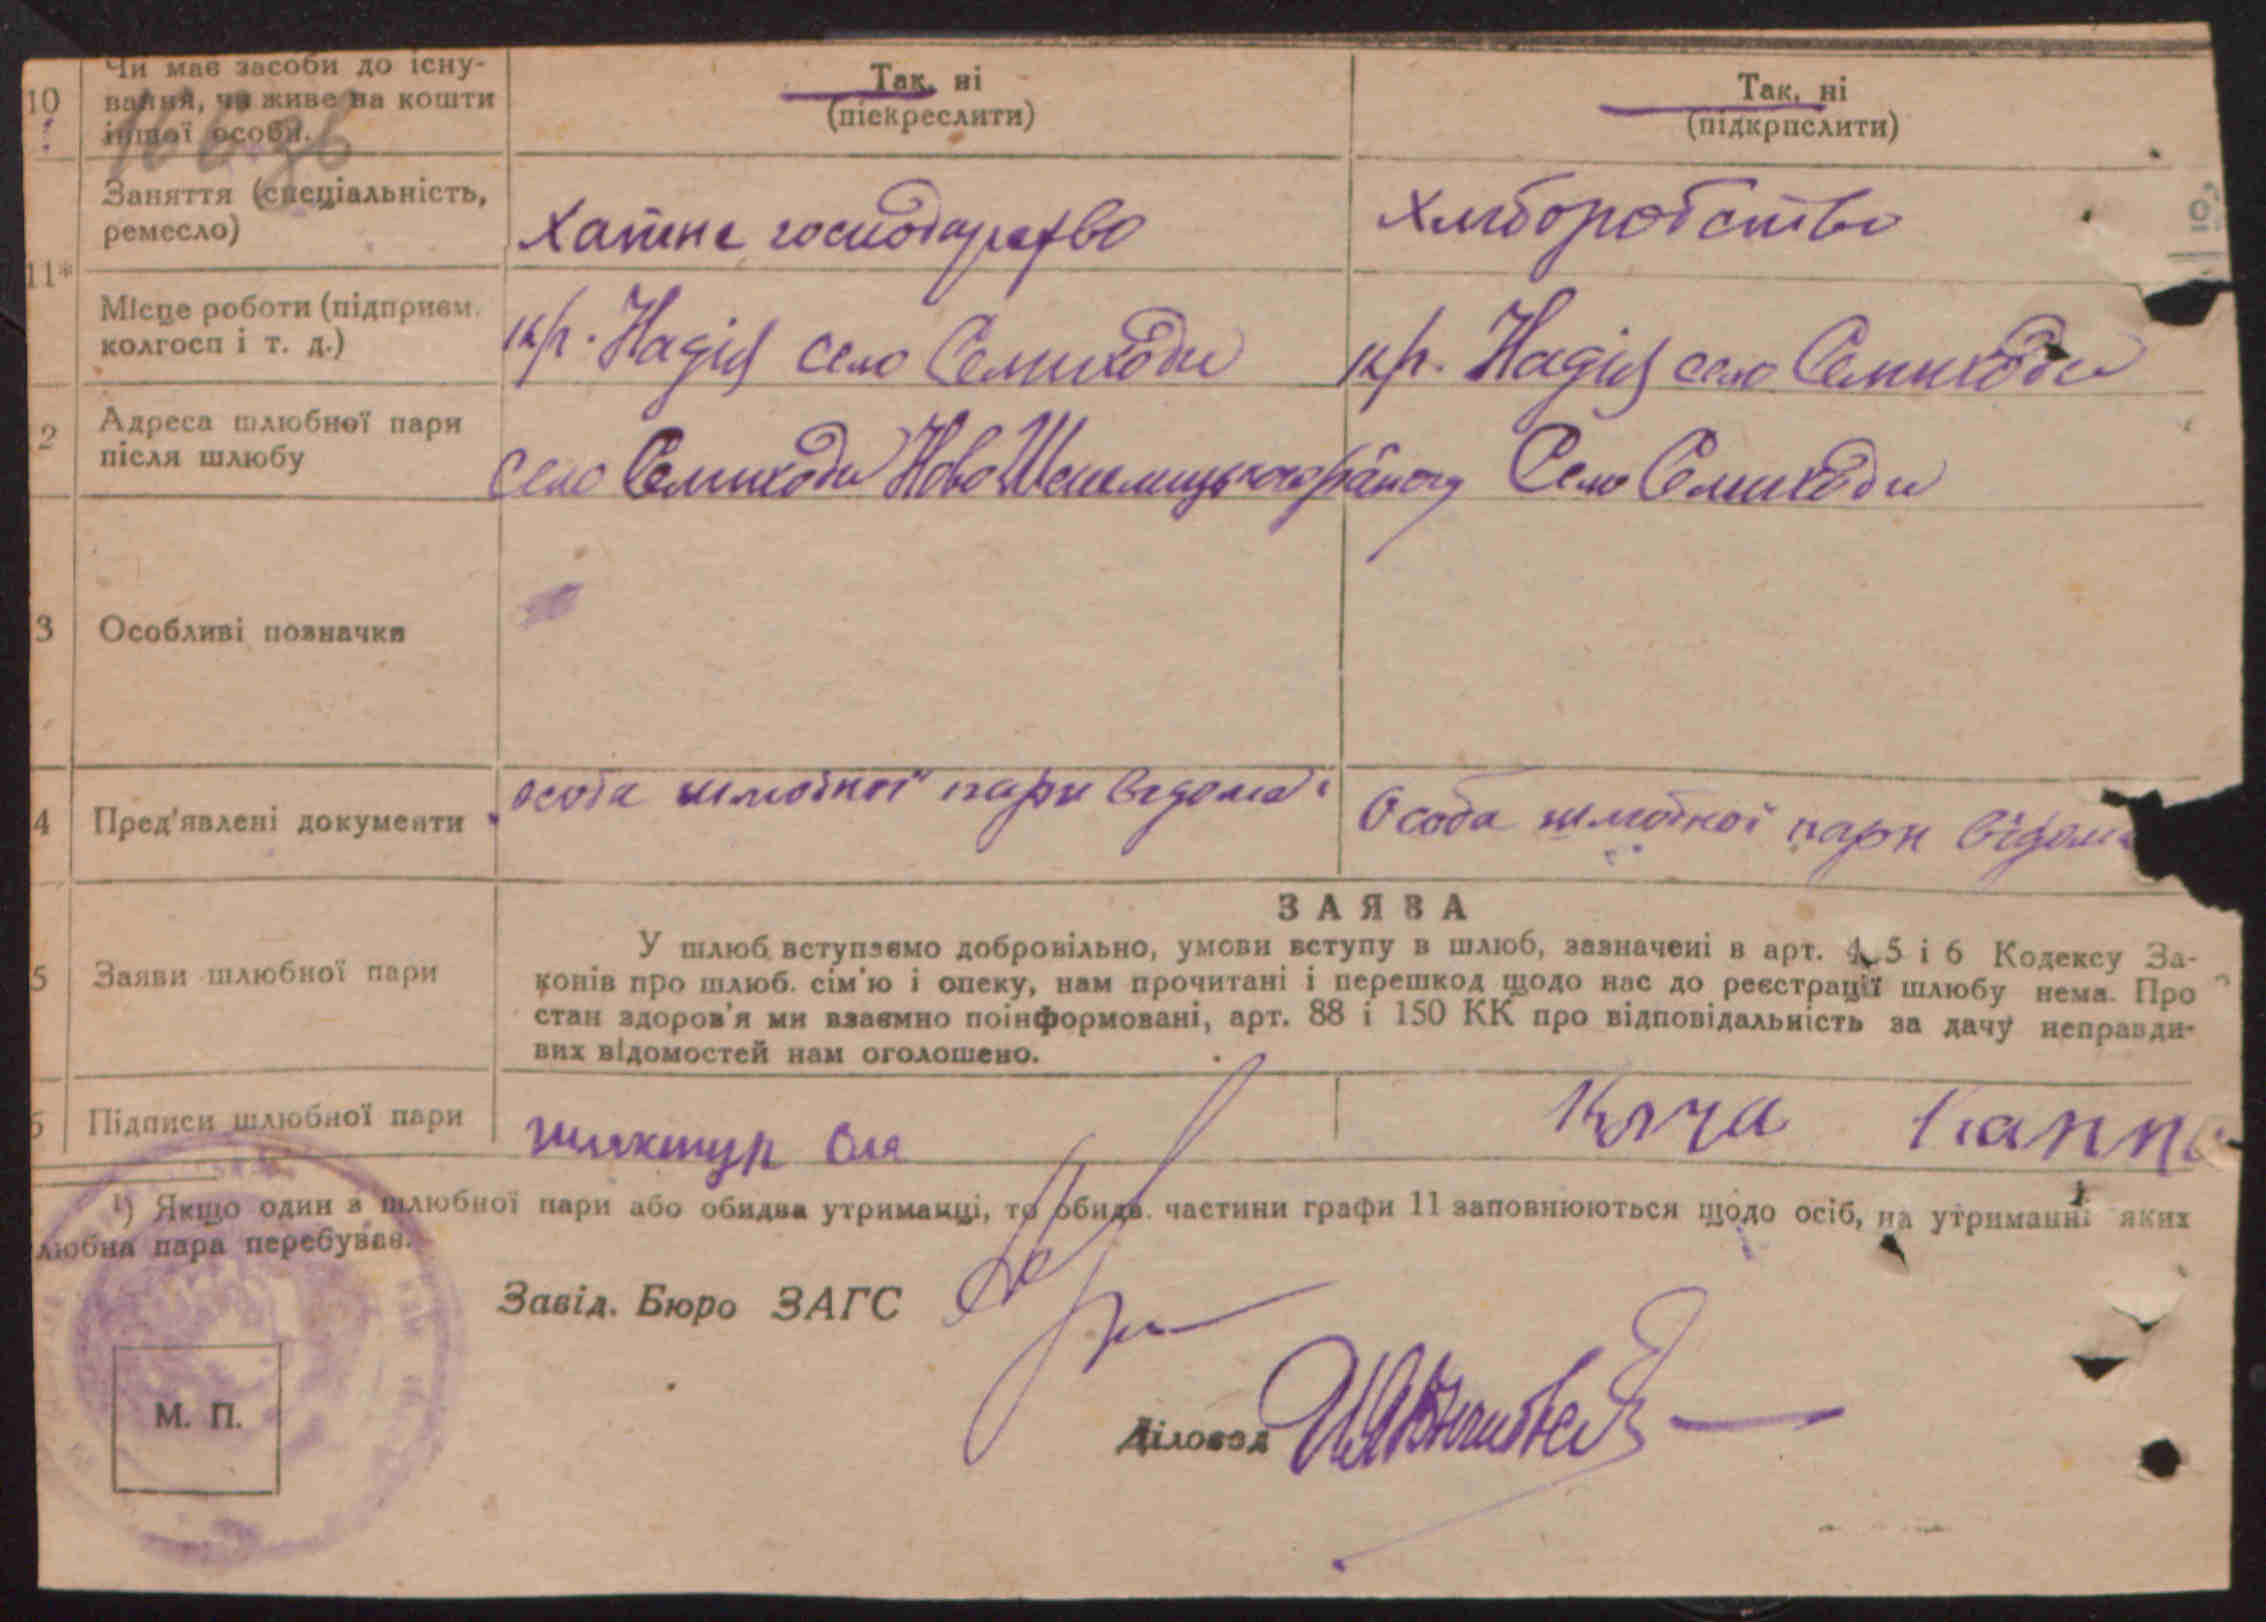 10
Чи має засоби до існу-
вання, чи живе на кошти
іншої особи.
Так, ні
(піекреслити)
Так, ні
(підкрпслити)
11*
Заняття (спеціальність,
ремесло)
Хатне господарство
Хліборобство
Місце роботи (підприєм.
колгосп і т. д.)
кр. Надія село Семиходи
кр. Надія село Семиходи
2
Адреса шлюбної пари
після шлюбу
село Семиходи Ново Шепелицького району
Село Семиходи
3
Особливі позначки
4
Пред'явлені документи
особа шлюбної пари відома
Особа шлюбної пари відома
5
Заяви шлюбної пари
ЗАЯВА
У шлюб вступаємо добровільно, умови вступу в шлюб, зазначені в арт. 4, 5 і 6 Кодексу За-
конів про шлюб. сім'ю і опеку, нам прочитані і перешкод щодо нас до реєстрації шлюбу нема. Про
стан здоров'я ми взаємно поінформовані, арт. 88 і 150 КК про відповідальність за дачу неправди-
вих відомостей нам оголошено.
6
Підписи шлюбної пари
Оля
¹) Якщо один з шлюбної пари або обидва утриманці, то обидв. частини графи 11 заповнюються щодо осіб, на утриманні яких
любна пара перебуває.
Завід. Бюро ЗАГС
Діловод
М. П.